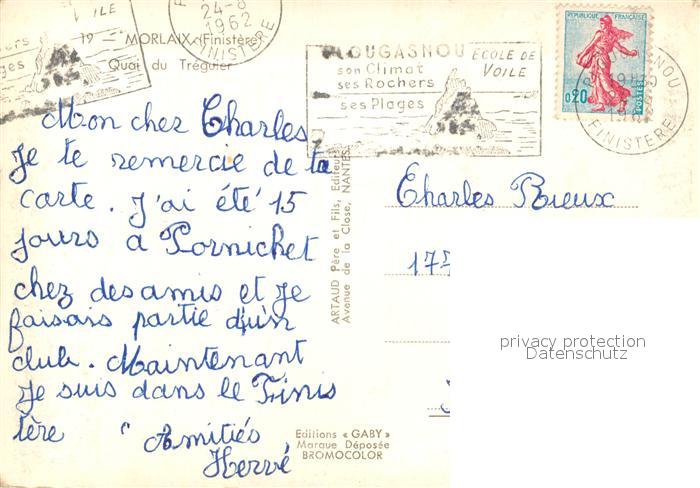 ILE
24-8
1962
FINISTERE
19 - MORLAIX (Finistère)
Quai du Tréguier
PLOUGASNOU
ÉCOLE DE
VOILE
son Climat
ses Rochers
ses Plages
REPUBLIQUE FRANÇAISE
0,20
POSTES
FINISTERE
Mon cher Charles
Je te remercie de ta
carte. J'ai été 15
jours a Pornichet
chez des amis et je
faisais partie d'un
club. Maintenant
je suis dans le Finis
tère " Amitiés,
Hervé
ARTAUD Père et Fils, Editeurs
Avenue de la Close, NANTES
Charles Rieux
177
privacy protection
Datenschutz
Editions « GABY »
Marque Déposée
BROMOCOLOR